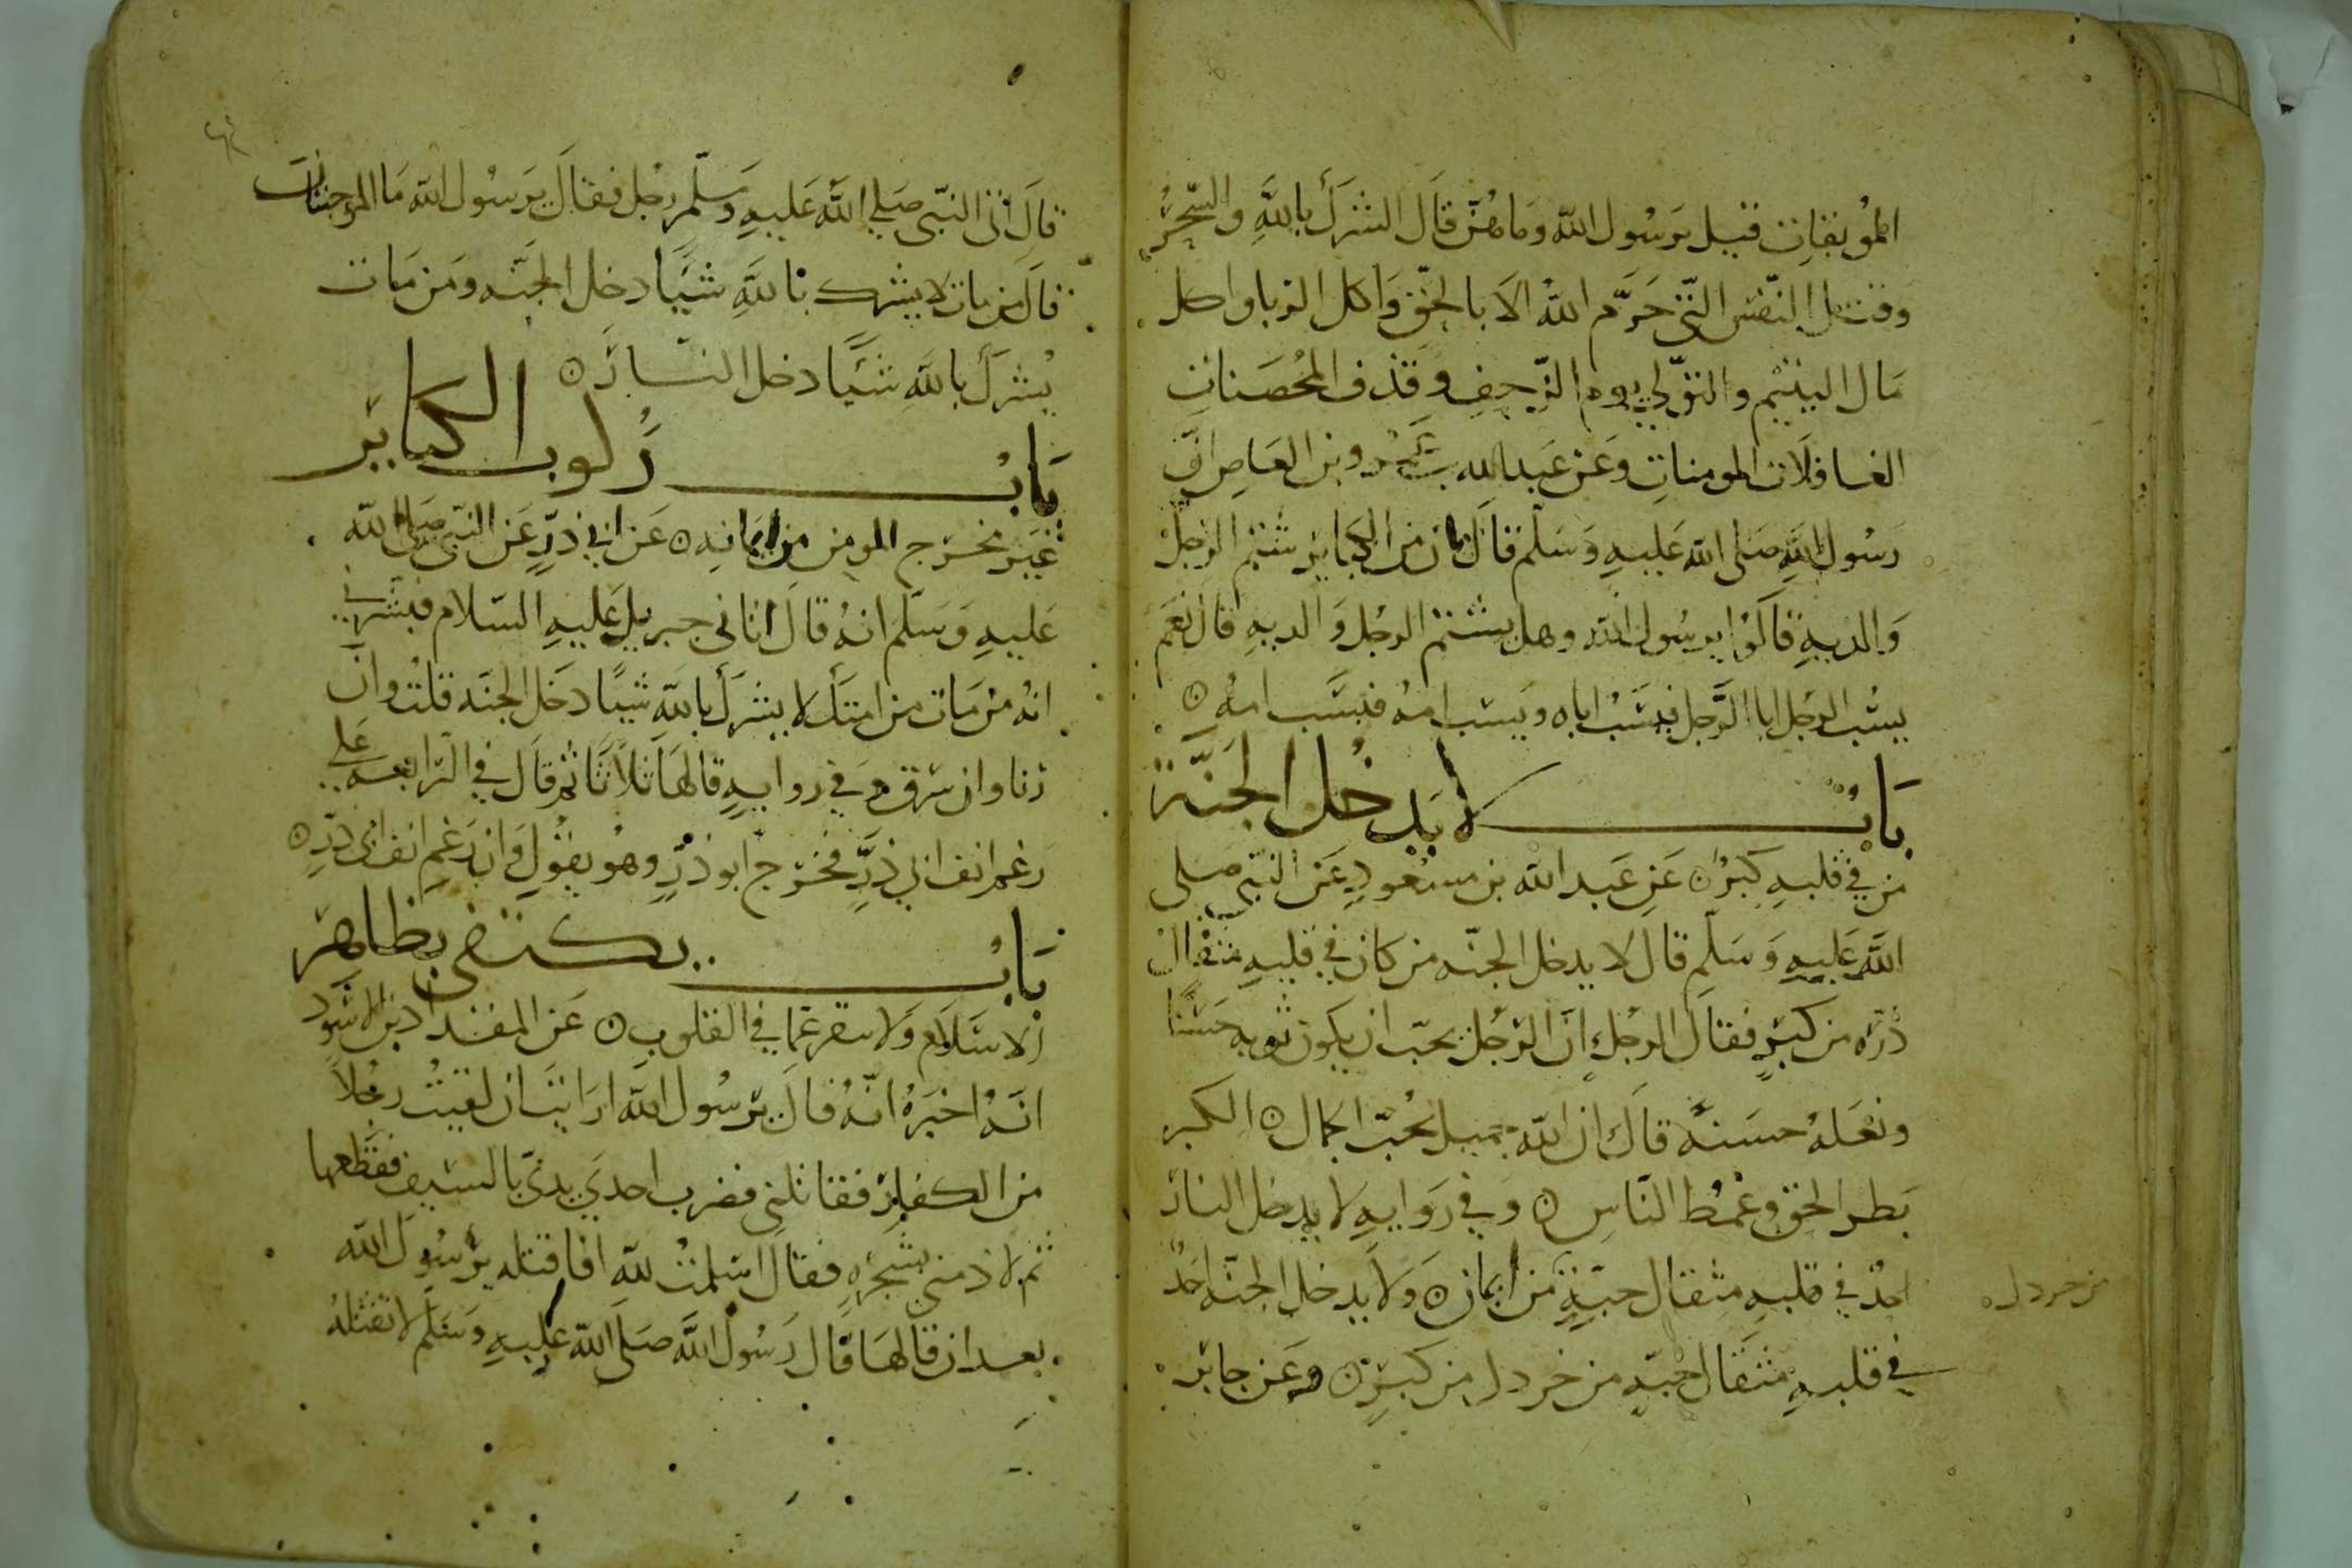 الموبقات قيل يرسول الله وما هن قال الشرك بالله والسحر
وقتل النفس التي حرم الله الا بالحق واكل الربا واكل
مال اليتيم والتولي يوم الزحف وقذف المحصنات
الغافلات المومنات وعن عبد الله بن عمرو بن العاص ان
رسول الله صلى الله عليه وسلم قال ان من الكباير شتم الرجل
والديه قالوا يرسول الله وهل يشتم الرجل والديه قال نعم
يسب الرجل ابا الرجل فيسب اباه ويسب امه فيسب امه
باب لا يدخل الجنة
من في قلبه كبر عن عبد الله بن مسعود عن النبي صلى
الله عليه وسلم قال لا يدخل الجنه من كان في قلبه مثقال
ذره من كبر فقال الرجل ان الرجل يحب ان يكون ثوبه حسنا
ونعله حسنه قال ان الله جميل يحب الجمال الكبر
بطر الحق وغمط الناس وفي روايه لا يدخل النار
احد في قلبه مثقال حبة من ايمان ولا يدخل الجنه احد
من خردل
في قلبه مثقال حبه من خردل من كبر وعن جابر
قال اتى النبي صلي الله عليه وسلم رجل فقال يرسول الله ما الموجبتان
قال من مات لا يشرك بالله شيا دخل الجنه ومن مات
يشرك بالله شيا دخل النار
باب ركوب الكباير
غير مخرج المومن من ايمانه عن ابي ذر عن النبي صلى الله
عليه وسلم انه قال اتاني جبريل عليه السلام فبشرني
انه من مات من امتك لا يشرك بالله شيا دخل الجنه قلت وان
زنا وان سرق وفي روايه قالها ثلاثا ثم قال في الرابعه على
رغم انف ابي ذر فخرج ابو ذر وهو يقول وان رغم انف ابي ذر
باب يكتفى بظاهر
الاسلام ولا يبقر عما في القلوب عن المقداد بن الاسود
انه اخبره انه قال يرسول الله ارايت ان لقيت رجلا
من الكفار فقاتلني فضرب احدي يدي بالسيف فقطعها
ثم لاذ مني بشجره فقال اسلمت لله افاقتله يرسول الله
بعد ان قالها قال رسول الله صلى الله عليه وسلم لا تقتله